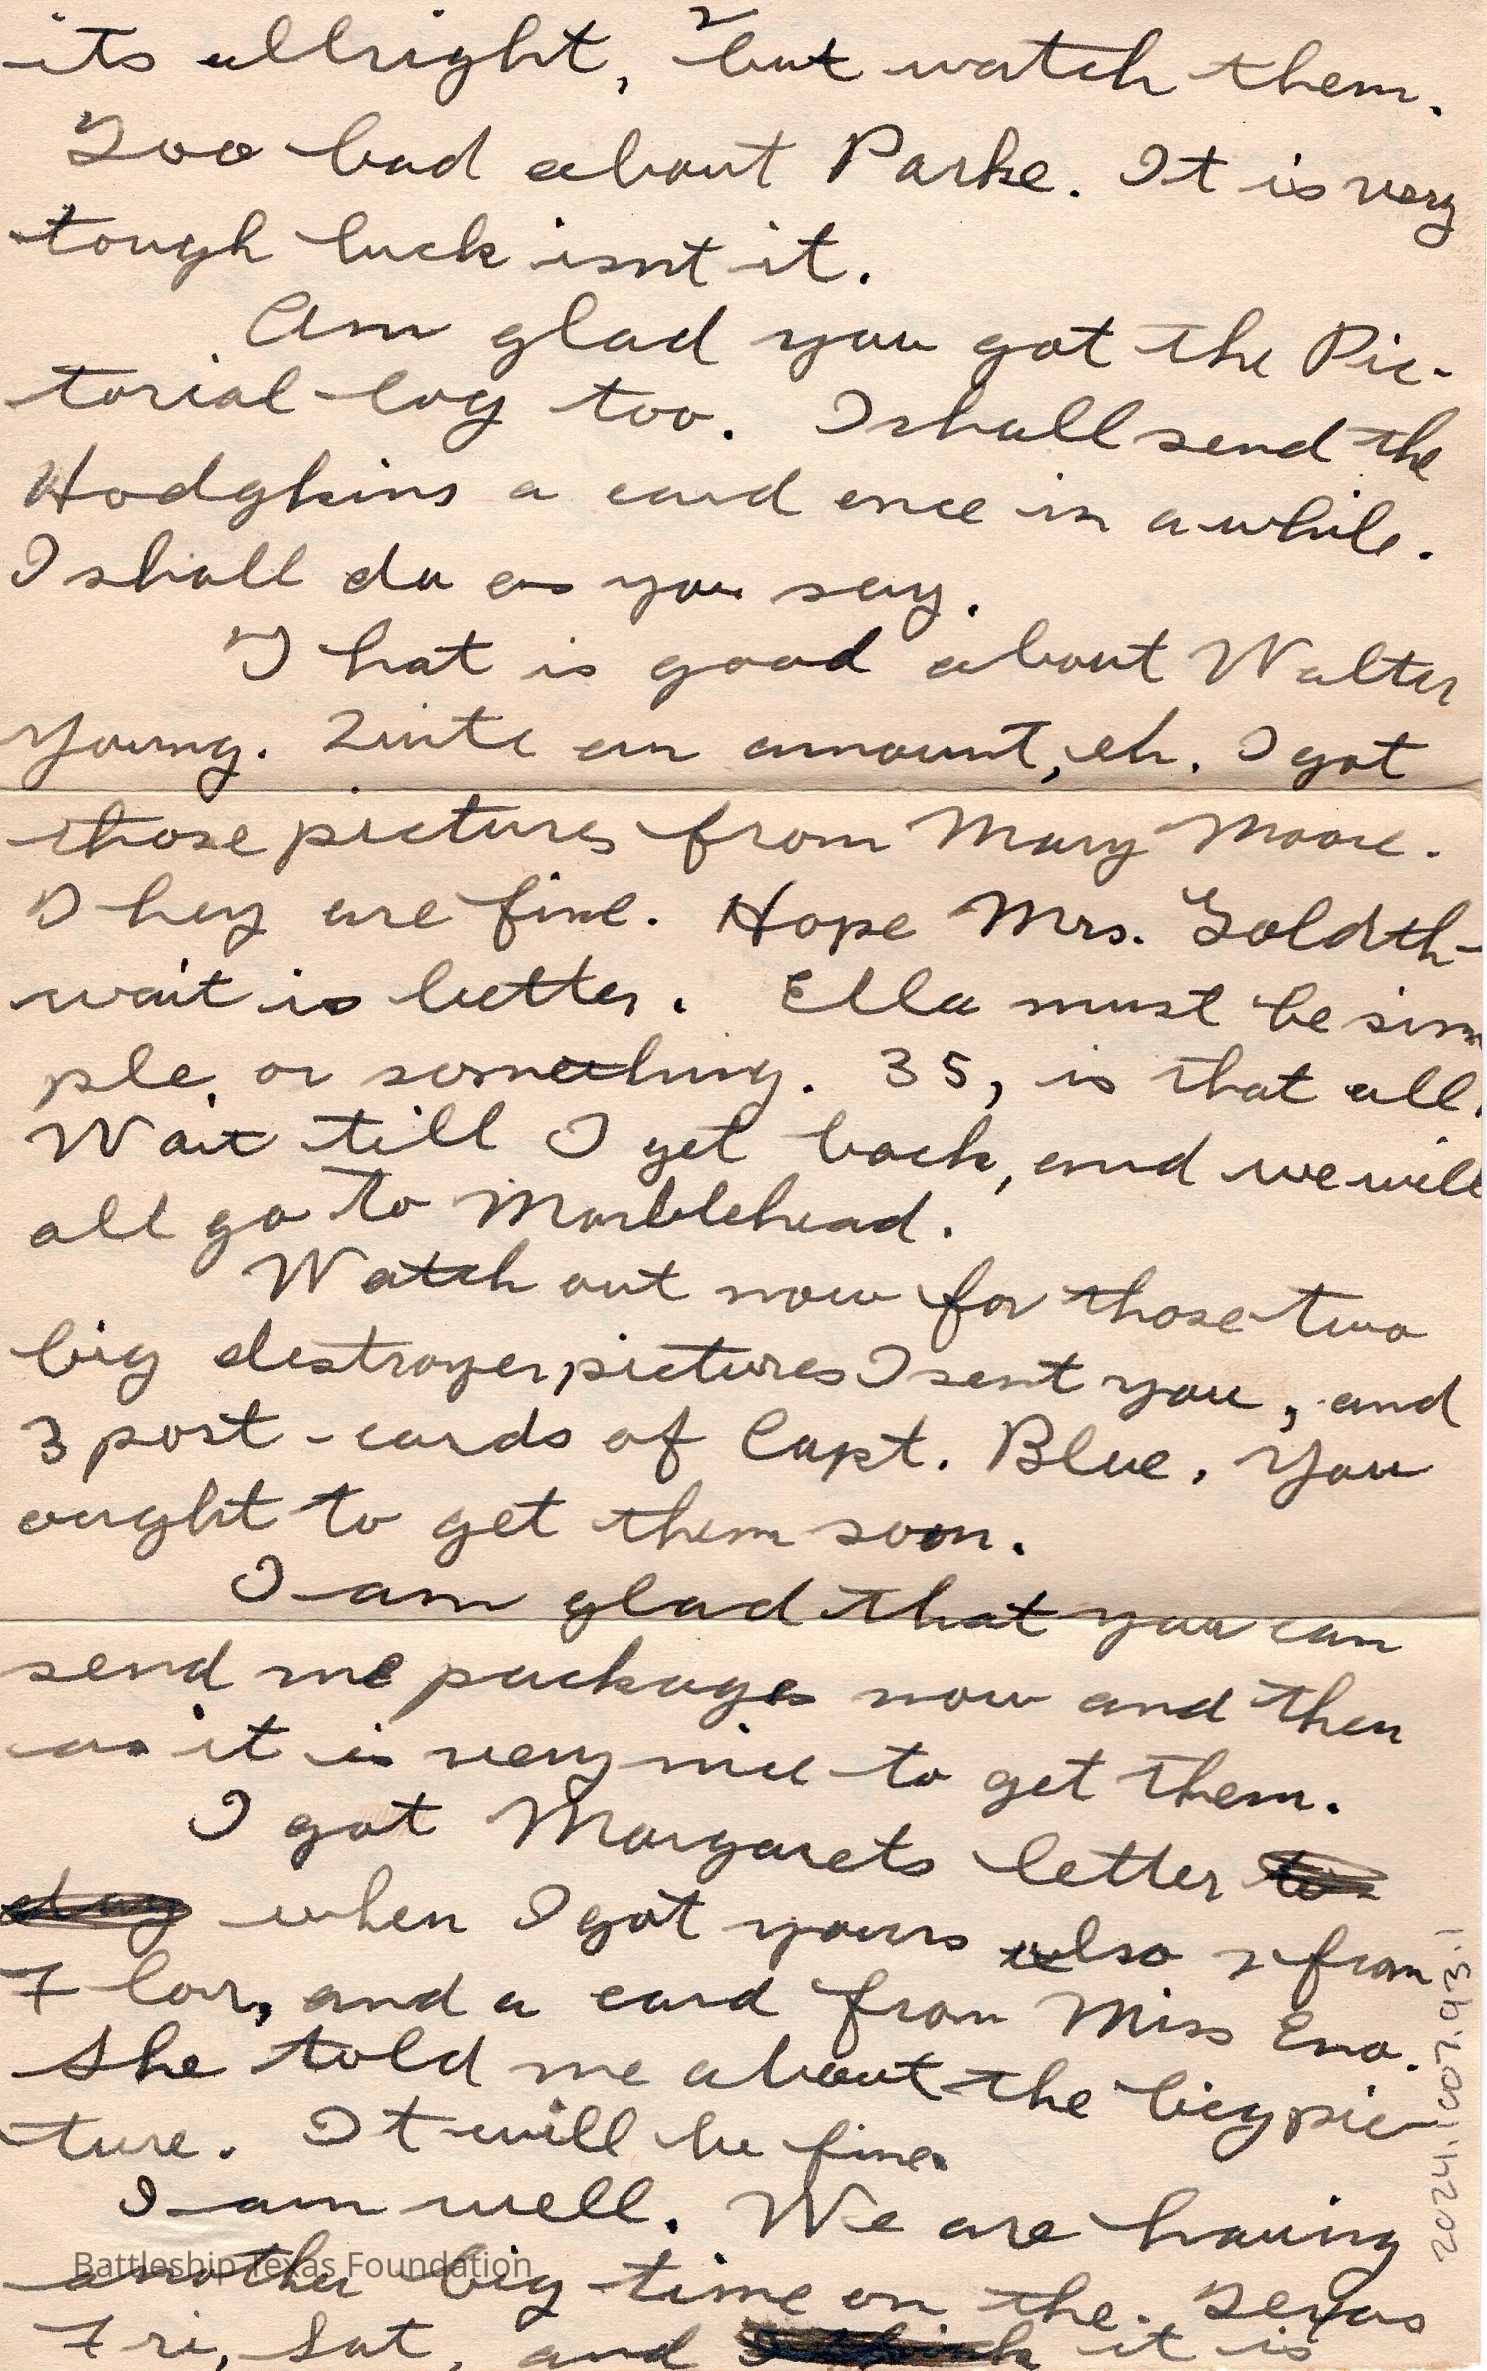 2
its allright, but watch them.
Too bad about Parke. It is very
tough luck isnt it.
Am glad you got the Pic-
torial-log too. I shall send the
Hodgkins a card once in awhile.
I shall do as you say.
That is good about Walter
Young. Quite an amount, eh. I got
those pictures from Mary Moore.
They are fine. Hope Mrs. Goldth-
wait is better. Ella must be sim
ple, or something. 35, is that all.
Wait till I get back, and we will
all go to Marblehead.
Watch out now for those two
big destroyer pictures I sent you, and
3 post-cards of Capt. Blue. You
ought to get them soon.
I am glad that you can
send me packages now and then
as it is very nice to get them.
I got Margarets letter to
day when I got yours also 2 from
Flor, and a card from Miss Eno.
She told me about the big pic-
ture. It will be fine.
I am well. We are having
another big time on the Texas
Fri, Sat, and I think it is
Battleship Texas Foundation
2024.1007.93.1